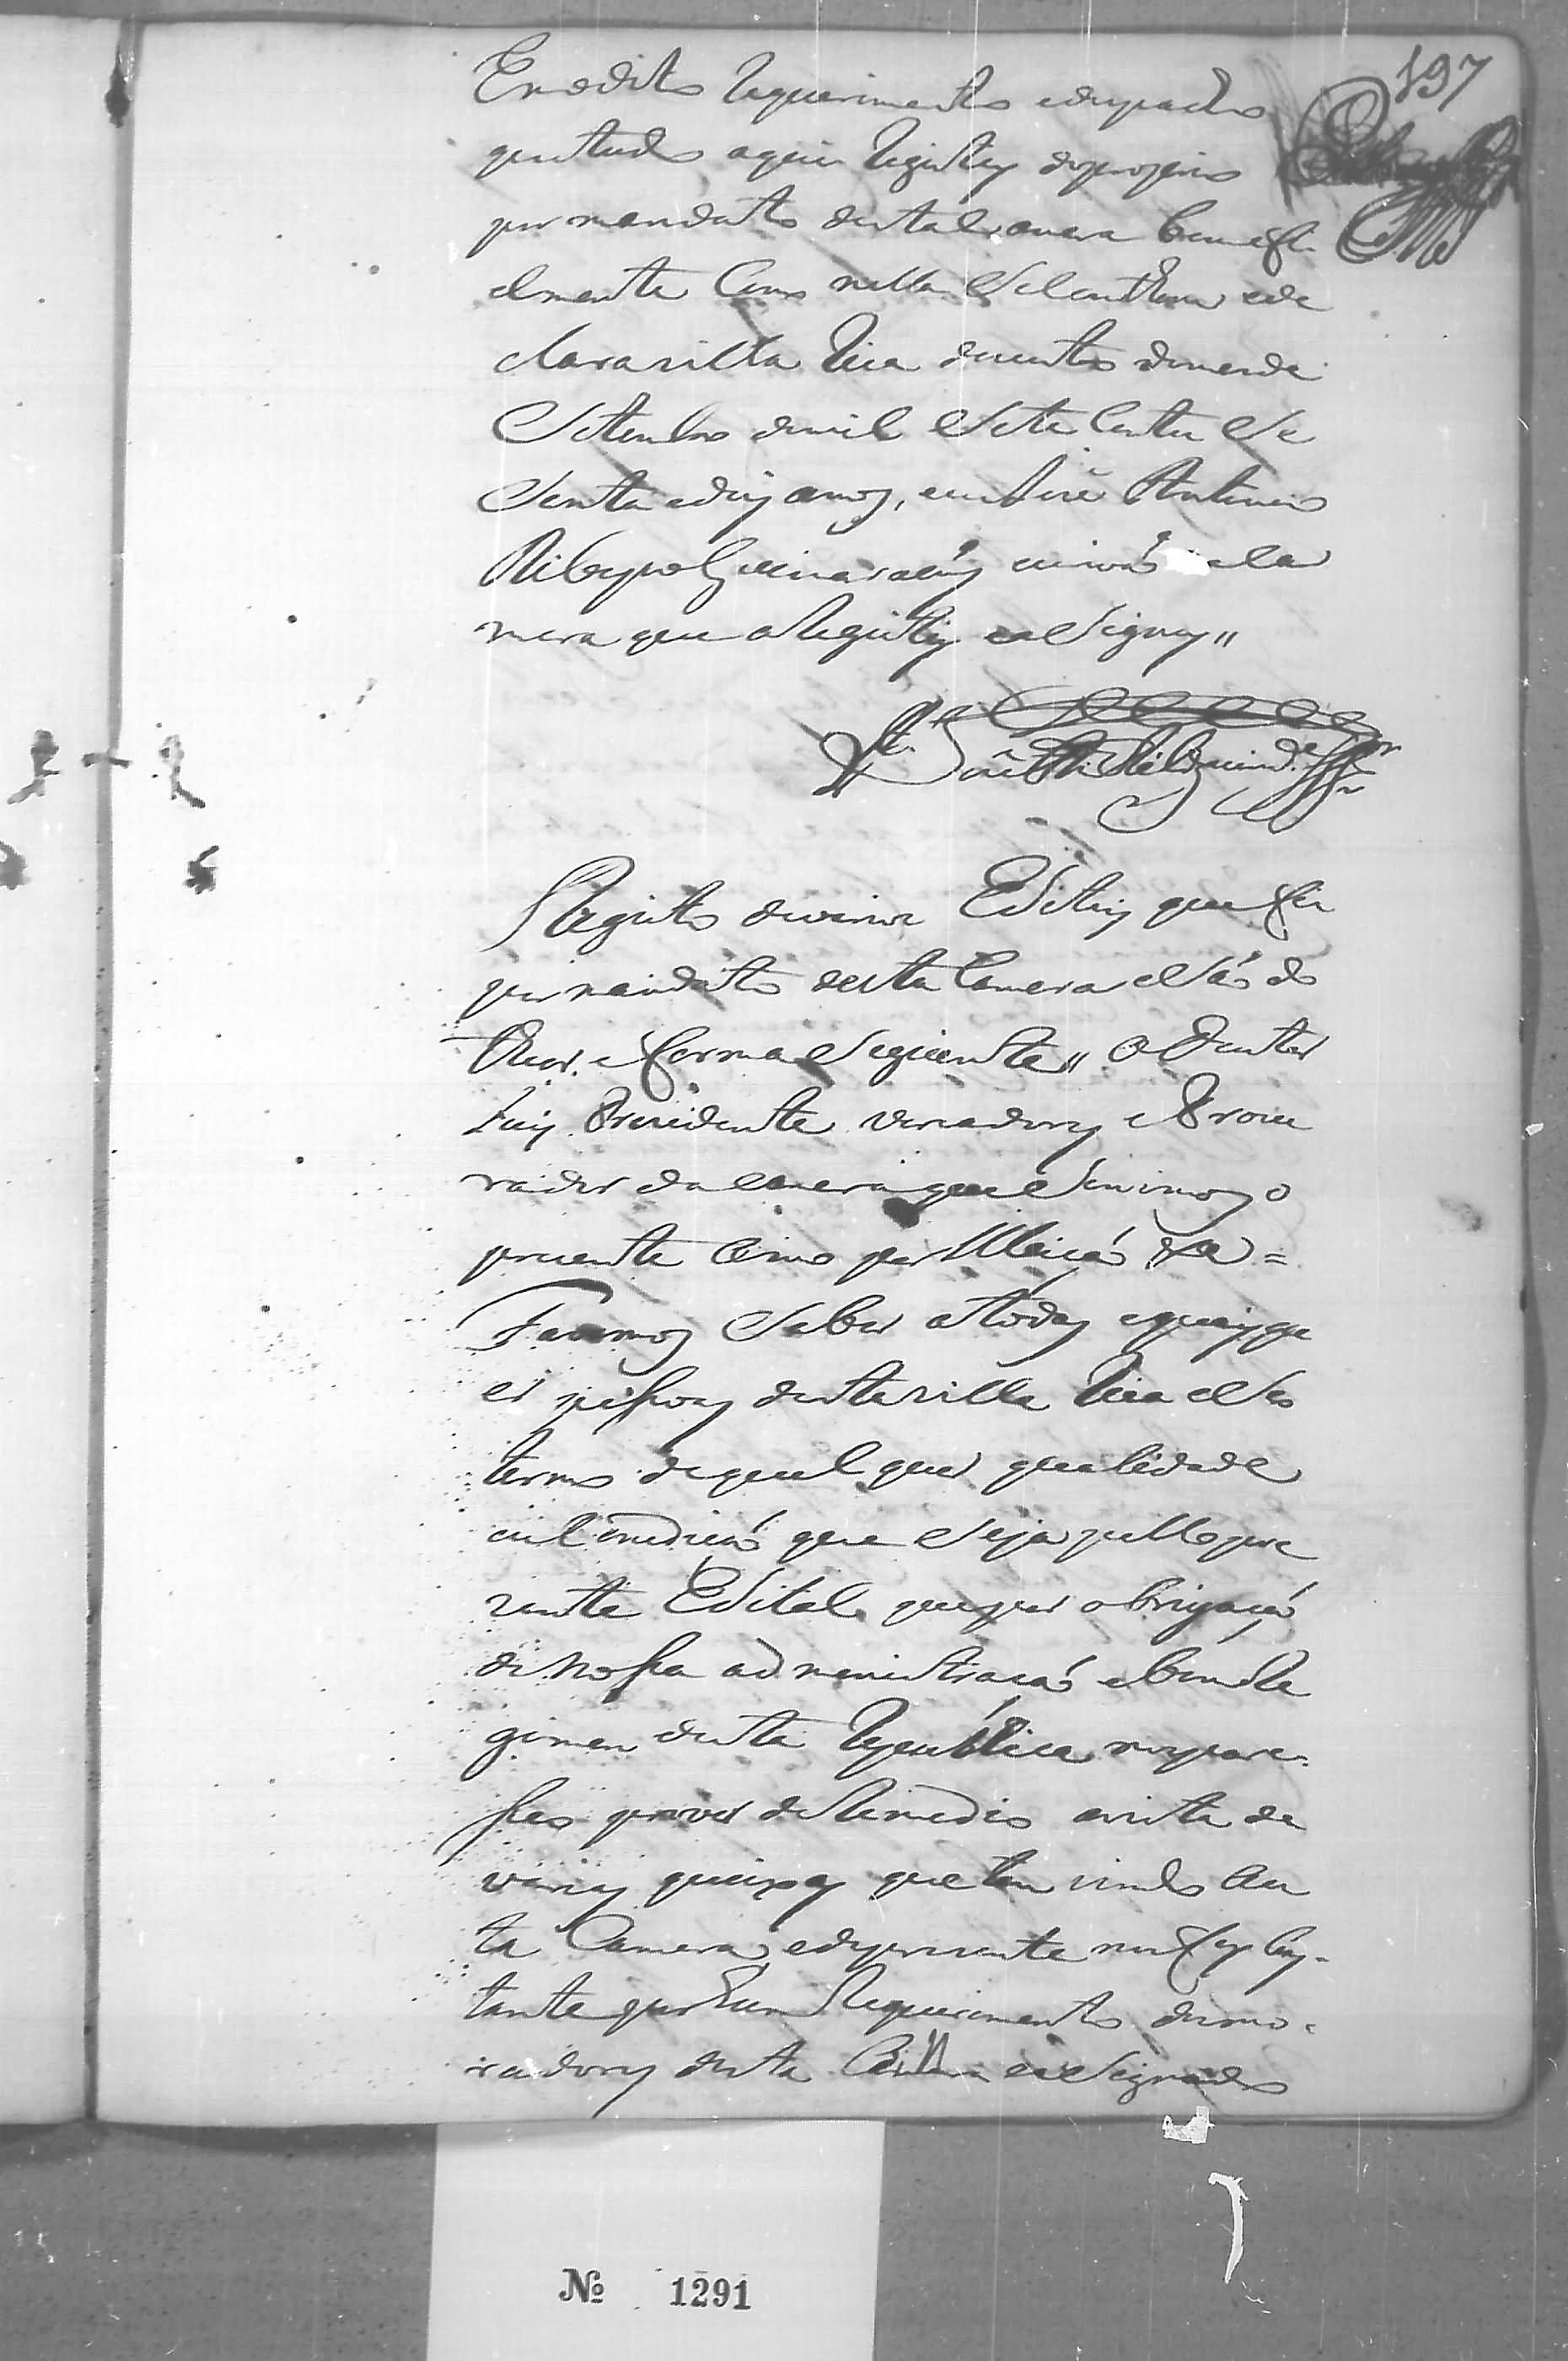 197
E no dito Requerimento e despacho
que tudo aqui Registey do proprio
por mandato desta Camera bem e fi
elmente Como nella Se conthem e de
clara villa Rica de outo do mes de
Setembro de mil e Sete Centos e Se
Senta e dois annos, eu José Antonio
Ribeyro Guimaraens escrivaõ da Ca
mera que o Registey e aSigney //
José Antº Ribº Guimes
Registo de varios Editais que fis
por mandato desta Camera e Saõ do
theor e forma Seguente // O Doutor
Juis Prezidente Vereadores e Procu
rador da Camera que Servimos o
prezente Como por Elleiçaõ &a =
Fazemos Saber a todas e quaisqu
er pessoas desta villa Rica e Seo
termo de qual quer qualidade
ou Condiçaõ que Seja pello pre
zente Edital que por obrigaçaõ
de nossa administraçaõ e bom Re
gimen desta Republica nos pare
sseo prover de Remedio avista de
varias queixas que tem vindo a es
ta Camera e de prezente nos fes Cons
tante por hum Requerimento dos mo
radores desta villa aSignado
Nº 1291